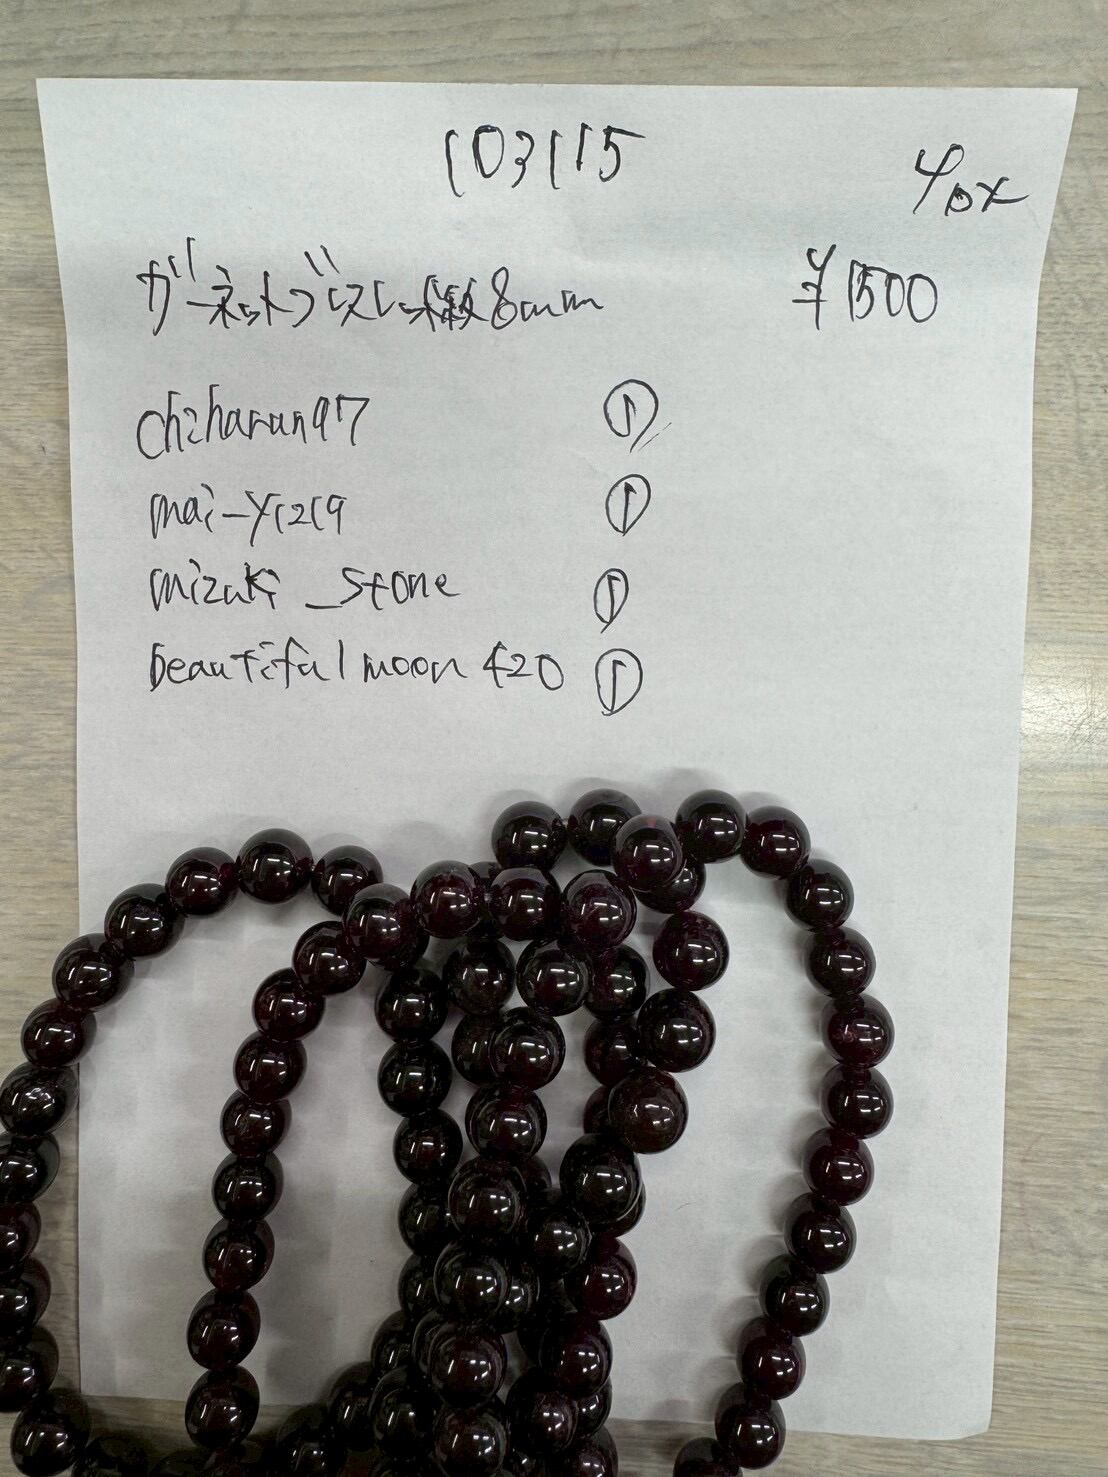 103115
4px
ガーネットブレスレット約8mm ¥1500
chiharun97 ①
mai-y1219 ①
mizuki_stone ①
beautifulmoon420 ①